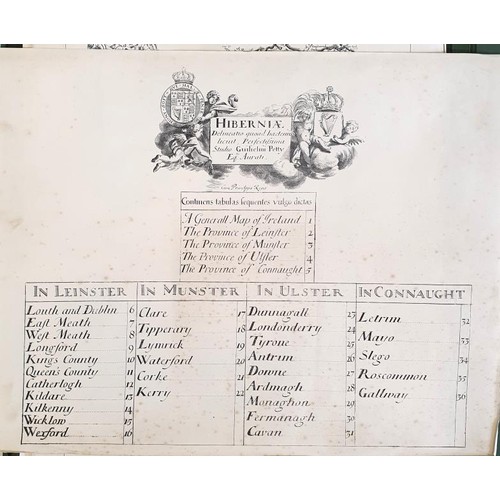 HIBERNIÆ
Delineatio quoad hactenus
licuit, Perfectissima
Studio Guilielmi Petty
Eqs. Aurati
Continens tabulas sequentes vulgo dictas
A Generall Map of Ireland 1
The Province of Leinster 2
The Province of Munster 3
The Province of Ulster 4
The Province of Connaught 5
IN LEINSTER
Louth and Dublin 6
East Meath 7
West Meath 8
Longford 9
Kings County 10
Queen's County 11
Catherlogh 12
Kildare 13
Kilkenny 14
Wicklow 15
Wexford 16
IN MUNSTER
Clare 17
Tipperary 18
Lymrick 19
Waterford 20
Corke 21
Kerry 22
IN ULSTER
Dunnagall 23
Londonderry 24
Tyrone 25
Antrim 26
Downe 27
Ardmagh 28
Monaghon 29
Fermanagh 30
Cavan 31
IN CONNAUGHT
Letrim 32
Mayo 33
Slego 34
Roscommon 35
Gallway 36